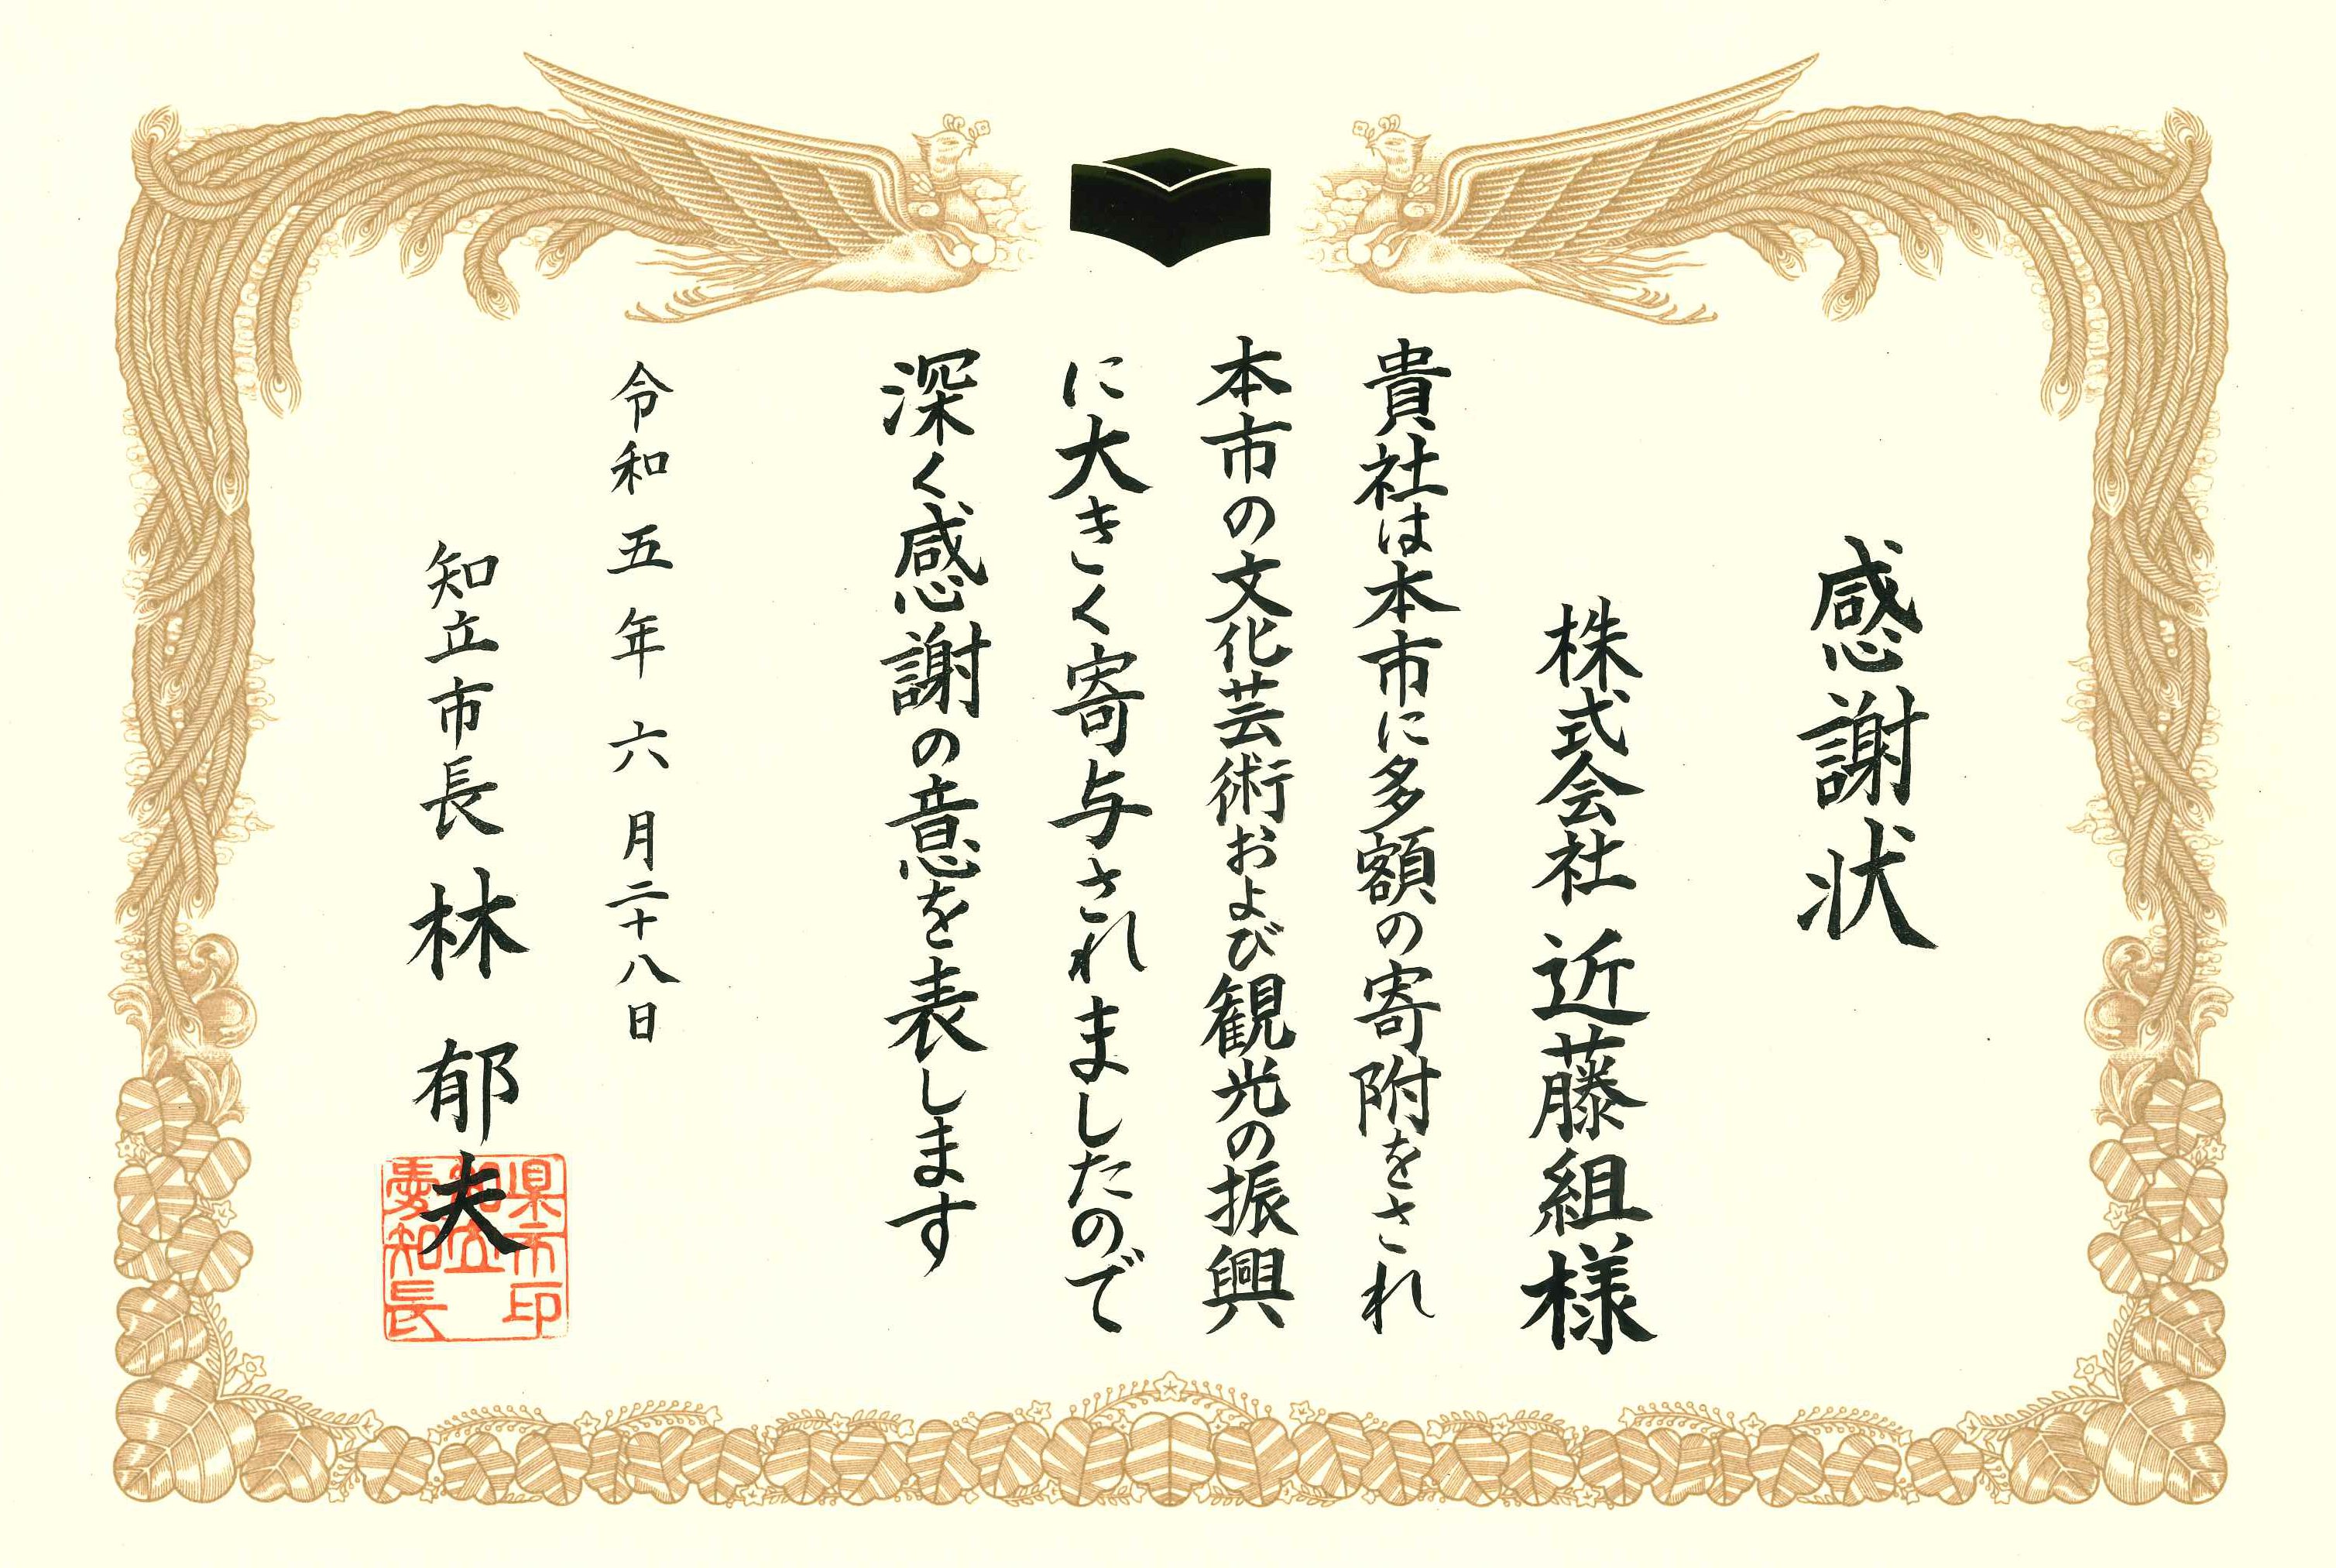 感謝状
株式会社 近藤組様
貴社は本市に多額の寄附をされ
本市の文化芸術および観光の振興
に大きく寄与されましたので
深く感謝の意を表します
令和五年六月二十八日
知立市長 林 郁夫
愛知県知立市長印